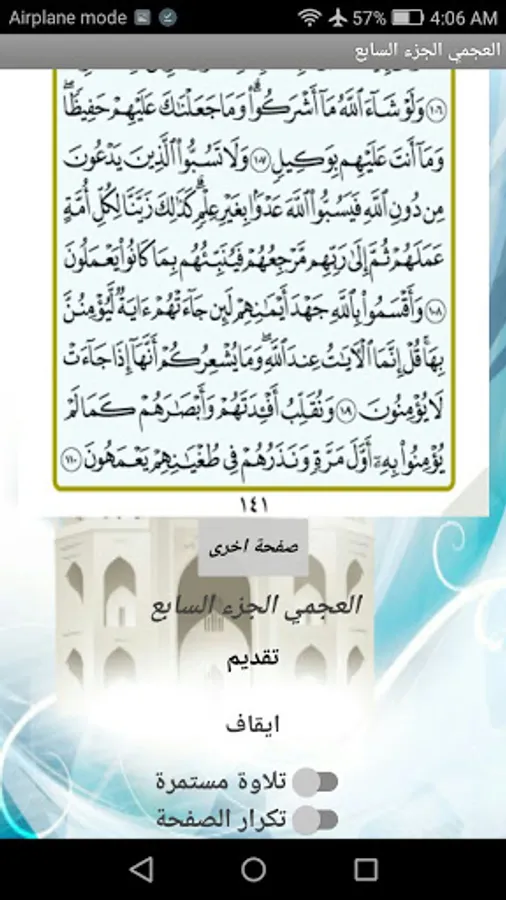 Airplane mode 57% 4:06 AM
العجمي الجزء السابع
١٠٦ وَلَوْ شَآءَ ٱللَّهُ مَآ أَشْرَكُوا۟ ۗ وَمَا جَعَلْنَٰكَ عَلَيْهِمْ حَفِيظًا ۖ
وَمَآ أَنتَ عَلَيْهِم بِوَكِيلٍ ١٠٧ وَلَا تَسُبُّوا۟ ٱلَّذِينَ يَدْعُونَ
مِن دُونِ ٱللَّهِ فَيَسُبُّوا۟ ٱللَّهَ عَدْوًۢا بِغَيْرِ عِلْمٍ ۗ كَذَٰلِكَ زَيَّنَّا لِكُلِّ أُمَّةٍ
عَمَلَهُمْ ثُمَّ إِلَىٰ رَبِّهِم مَّرْجِعُهُمْ فَيُنَبِّئُهُم بِمَا كَانُوا۟ يَعْمَلُونَ
١٠٨ وَأَقْسَمُوا۟ بِٱللَّهِ جَهْدَ أَيْمَٰنِهِمْ لَئِن جَآءَتْهُمْ ءَايَةٌ لَّيُؤْمِنُنَّ
بِهَا ۚ قُلْ إِنَّمَا ٱلْءَايَٰتُ عِندَ ٱللَّهِ ۖ وَمَا يُشْعِرُكُمْ أَنَّهَآ إِذَا جَآءَتْ
لَا يُؤْمِنُونَ ١٠٩ وَنُقَلِّبُ أَفْـِٔدَتَهُمْ وَأَبْصَٰرَهُمْ كَمَا لَمْ
يُؤْمِنُوا۟ بِهِۦٓ أَوَّلَ مَرَّةٍ وَنَذَرُهُمْ فِى طُغْيَٰنِهِمْ يَعْمَهُونَ ١١٠
١٤١
صفحة اخرى
العجمي الجزء السابع
تقديم
ايقاف
تلاوة مستمرة
تكرار الصفحة